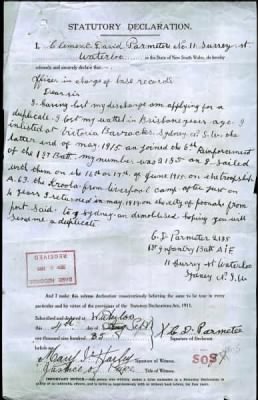 STATUTORY DECLARATION.
I, Clement David Parmeter No 11 Surrey st
Waterloo in the State of New South Wales, do hereby
solemnly and sincerely declare that
Officer in charge of base records
Dear sir
I having lost my discharge am applying for a
duplicate I lost my wallet in Brisbane years ago. I
enlisted at Victoria Barracks Sydney N.S.W. the
latter end of may 1915 an joined the 6th Reinforcement
of the 1st Batt. my number was 2135 an I sailed
with them on the 16th or 17th of June 1915 on the troopship
A 63 the Karoola from Liverpool camp after just on
4 years I returned in may 1919 on the city of poonah from
port said to sydney an demobilised hoping you will
send me a duplicate
C D Parmeter 2135
1st Infantry Batt A.I.F
11 Surrey st Waterloo
Sydney N.S.W
BASE RECORDS
RECEIVED
And I make this solemn declaration conscientiously believing the same to be true in every
particular and by virtue of the provisions of the Statutory Declarations Act, 1911.
Subscribed and declared at Waterloo
this 4th day of Sept
one thousand nine hundred and 35
before me
C D Parmeter
Signature of Declarant.
Signature of Witness.
Justice of Peace
Title of Witness.